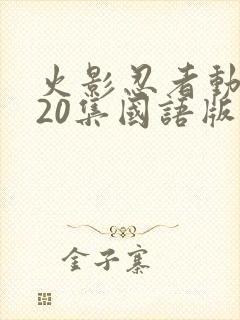 火影忍者動
20集國語版
金子寨